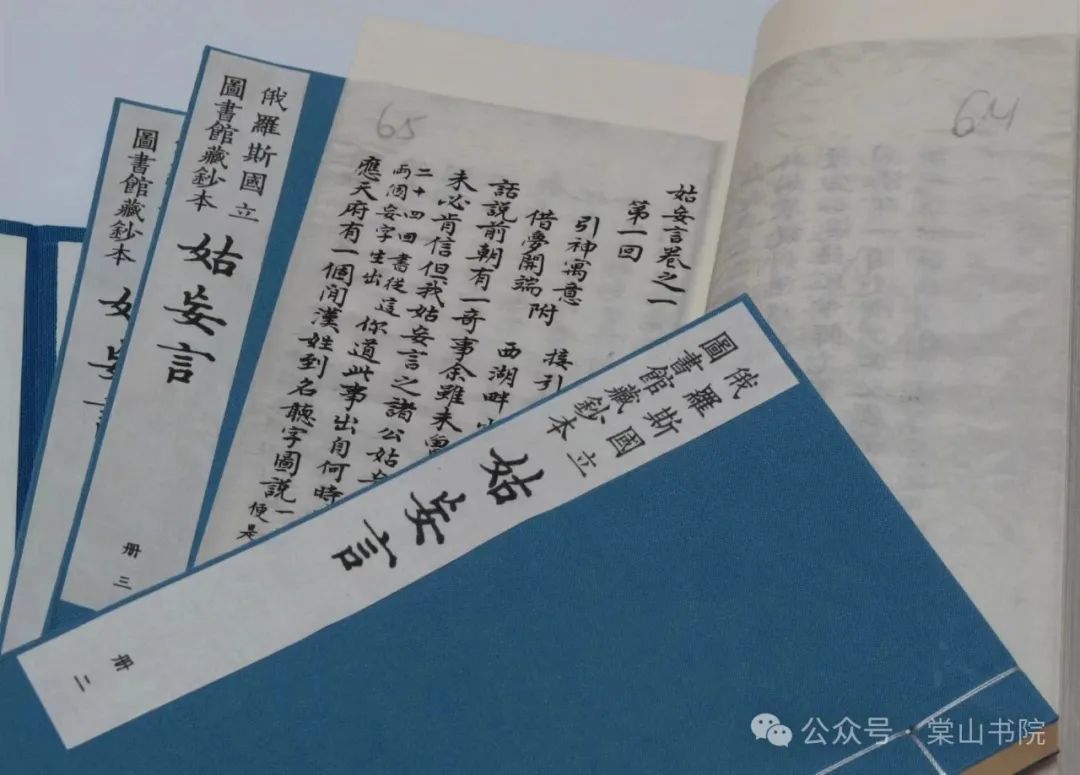 俄羅斯國立
圖書館藏鈔本
姑妄言
册三
圖書館藏鈔本
65
64
姑妄言卷之一
第一回
引神寓意 接引
借夢開端 附 西湖畔
話說前朝有一奇事余雖未曾
未必肯信但我姑妄言之諸公姑
二十四回書從這
兩個妄字生出 你道此事出自何時
應天府有一個閒漢姓到名聽字圖說一
便是
俄羅斯國立
圖書館藏鈔本
姑妄言
册二
公众号·棠山书院